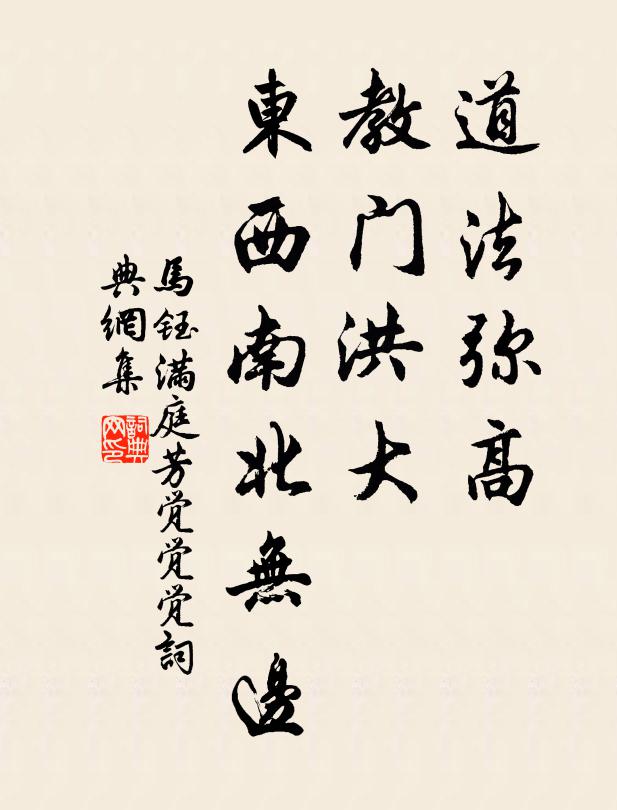 道法弥高
教门洪大
東西南北無邊
馬鈺满庭芳觉觉觉詞
典網集
詞典
网印